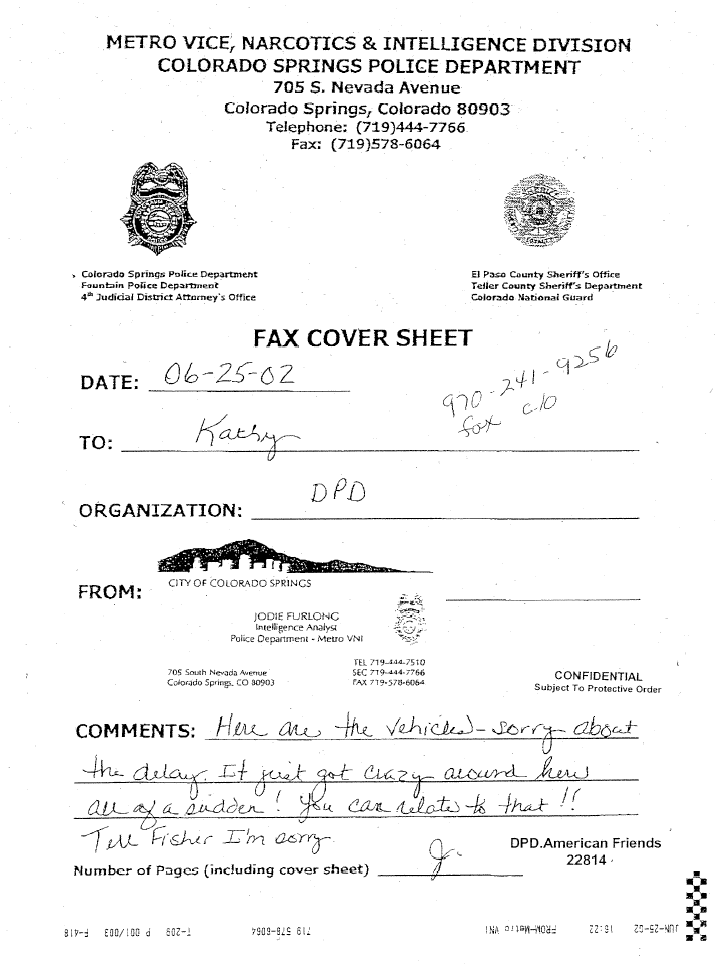 METRO VICE, NARCOTICS & INTELLIGENCE DIVISION
COLORADO SPRINGS POLICE DEPARTMENT
705 S. Nevada Avenue
Colorado Springs, Colorado 80903
Telephone: (719)444-7766
Fax: (719)578-6064
Colorado Springs Police Department
Fountain Police Department
4th Judicial District Attorney's Office
El Paso County Sheriff's Office
Teller County Sheriff's Department
Colorado National Guard
FAX COVER SHEET
DATE: 06-25-02
970-241-9256
fax c/o
TO: Kathy
ORGANIZATION: DPD
FROM:
CITY OF COLORADO SPRINGS
JODIE FURLONG
Intelligence Analyst
Police Department - Metro VNI
705 South Nevada Avenue
Colorado Springs, CO 80903
TEL 719-444-7510
SEC 719-444-7766
FAX 719-578-6064
CONFIDENTIAL
Subject To Protective Order
COMMENTS: Here are the vehicles - sorry about
the delay. It just got crazy around here
all of a sudden! You can relate to that!!
Tell Fisher I'm sorry.
DPD.American Friends
22814
Number of Pages (including cover sheet)
JUN-25-02 16:22 FROM-Metro VNI 719 578-6064 T-209 P 001/003 F-418